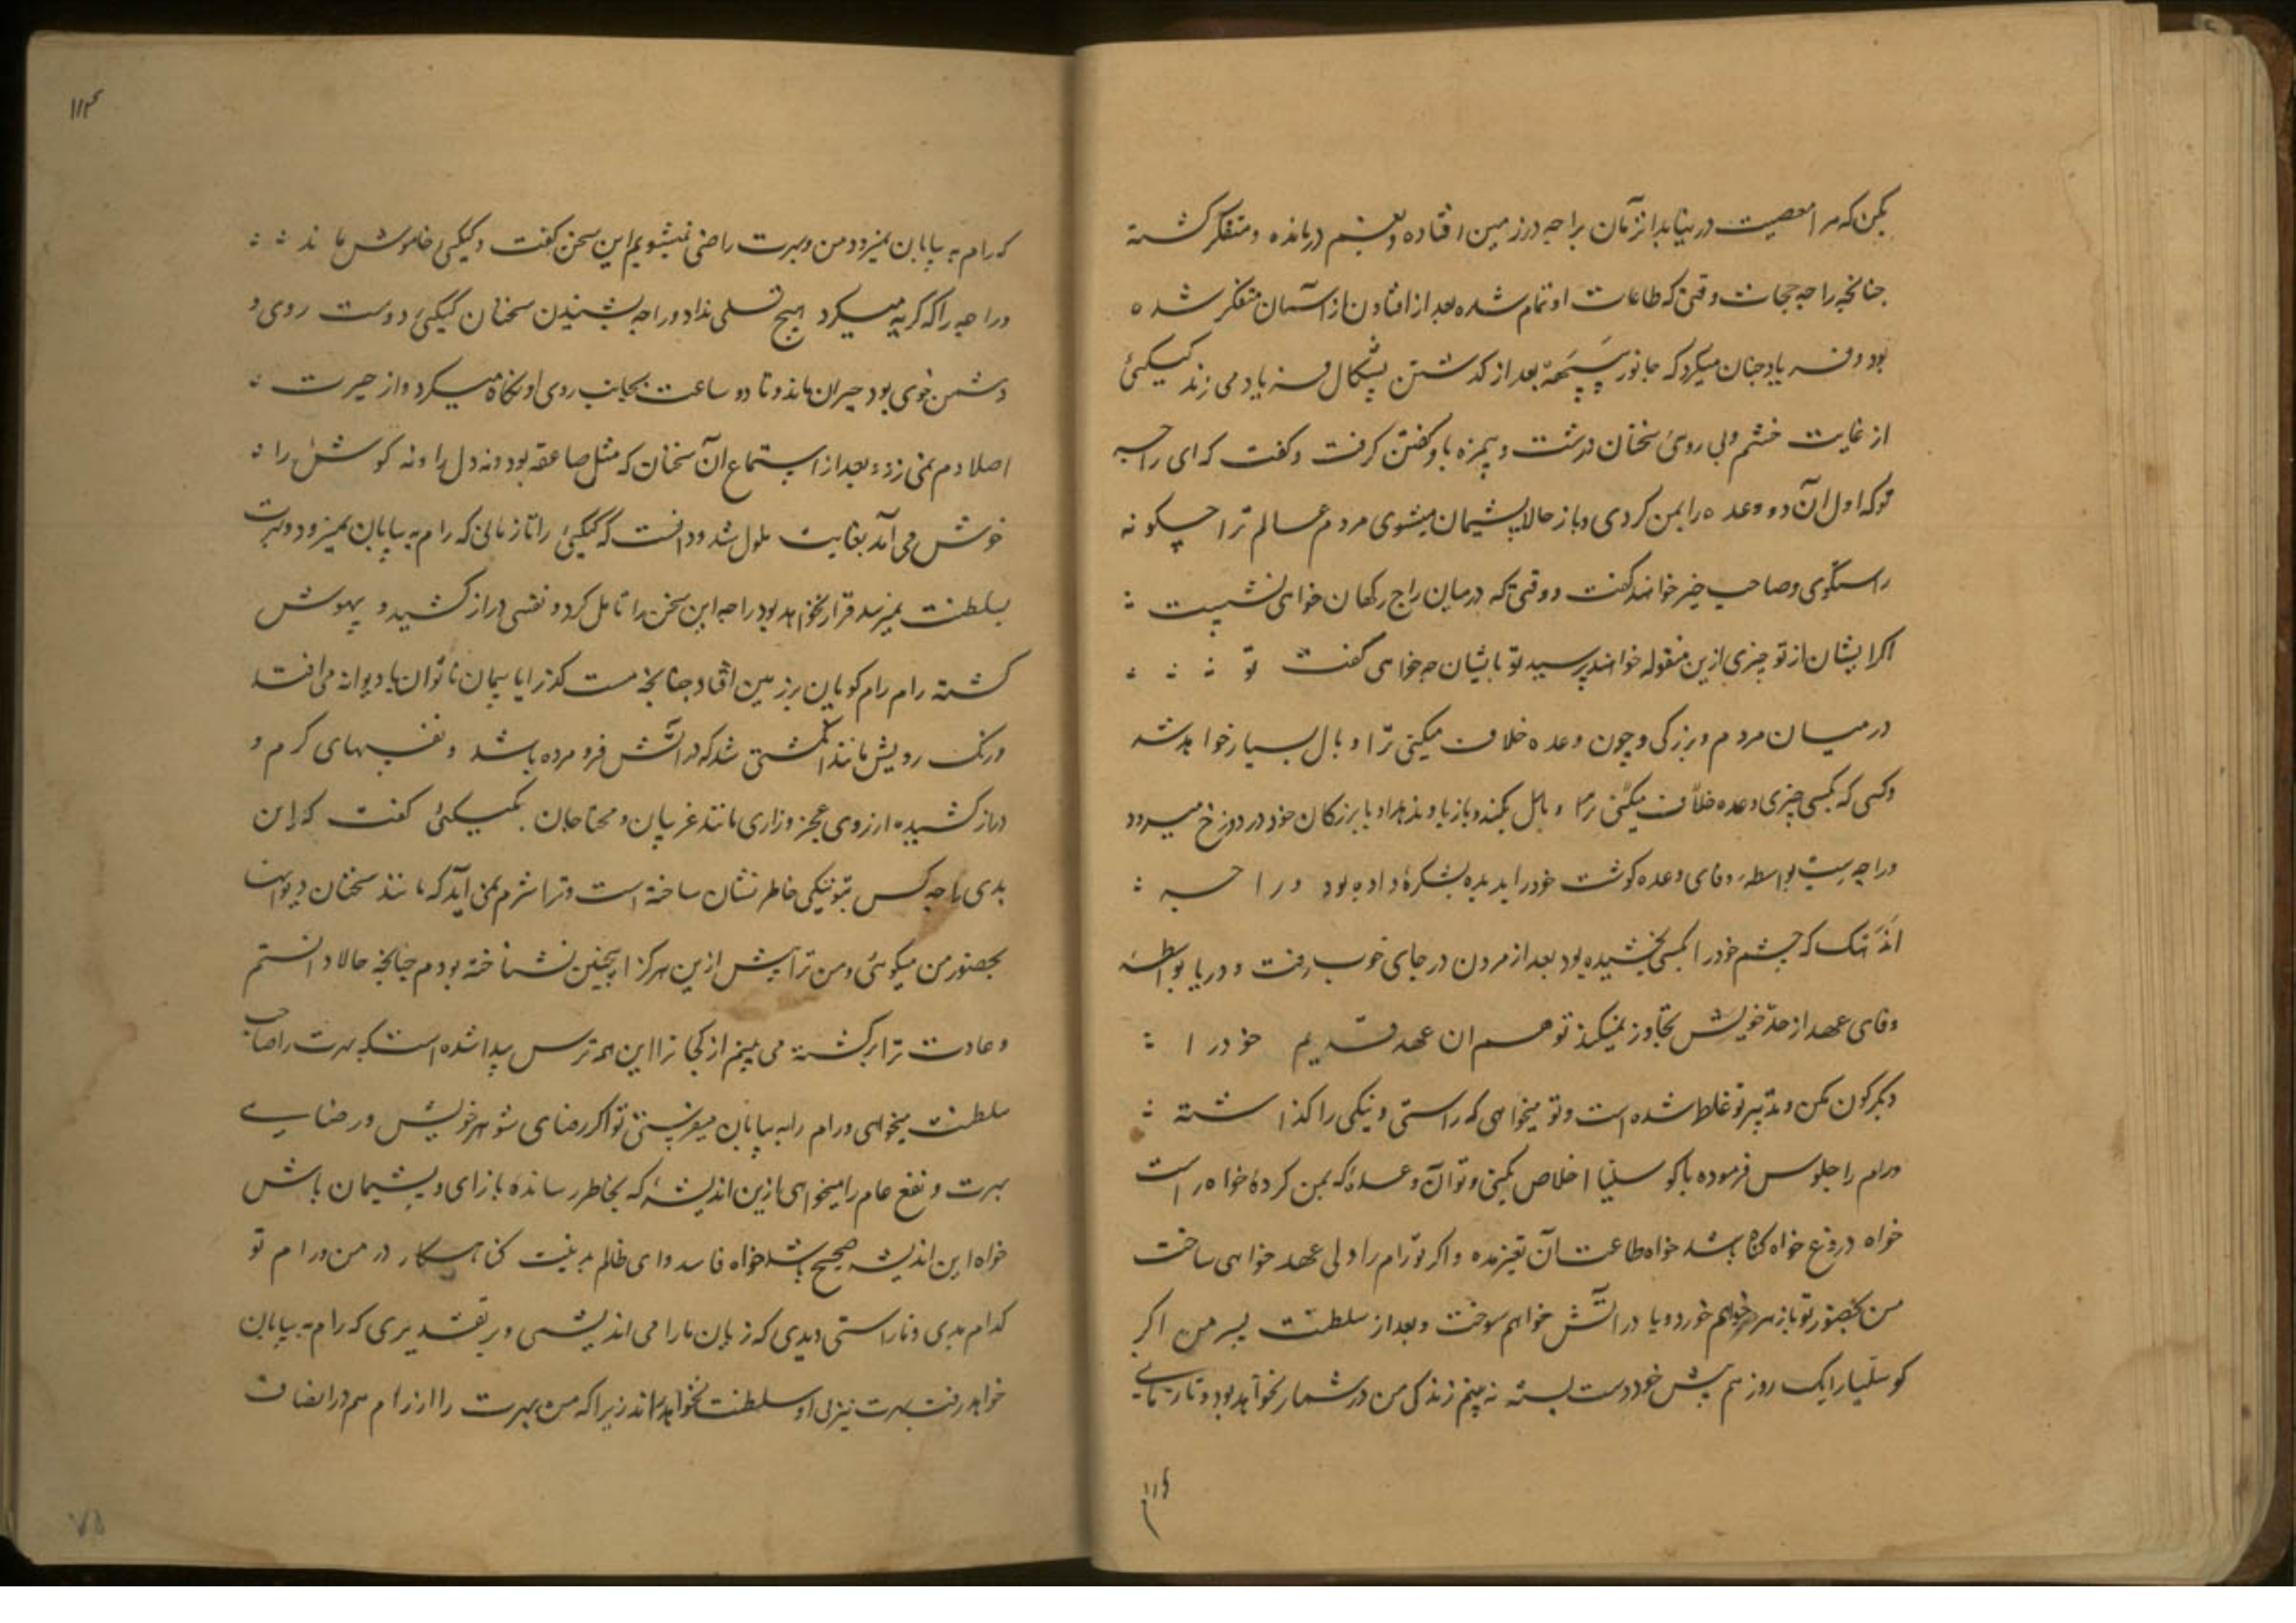 بکن که مرا معصیت در نیابد انزمان براجه در زمین افتاده و بغم درمانده و متفکر کشته
جنانچه راجه ججات وقتی که طاعات او تمام شده بعد از افتادن از آسمان متفکر شده
بود و فریاد جنان میکرد که جانور پپیهه بعد از کذشتن پشکال فریاد می زند کیکئی
از غایت خشم و بی روئی سخنان درشت و بیمزه باو کفتن کرفت و کفت که ای راجه
توکه اول آن دو وعده را بمن کردی و باز حالا پشیمان میشوی مردم عالم ترا چکونه
راستکوی و صاحب خیر خواهند کفت و وقتی که درمیان راج رکهان خواهی نشست
اکر ایشان از تو چیزی ازین مقوله خواهند پرسید تو بایشان چه خواهی کفت تو
در میان مردم بزرکی و چون وعده خلاف میکنی ترا وبال بسیار خواهد شد
وکسی که بکسی چیزی وعده خلاف میکند و باز باو ندهد او با بزرکان خود در دوزخ میرود
و راجه سیب بواسطه وفای وعده کوشت خود را بریده بشکره داده بود و راجه
که چشم خود را بکسی بخشیده بود بعد از مردن در جای خوب رفت و دریا بواسطه
وفای عهد از حد خویش تجاوز نمیکند تو هم ان عهد قدیم خود را
دیکرکون مکن و تدبیر تو غلط شده است و تو میخواهی که راستی و نیکی را کذاشته
ورام را جلوس فرموده با کوسلیا اخلاص بکنی و تو آن وعده که بمن کرده خواه راست
خواه دروغ خواه کناه باشد خواه طاعت آن تغیر مده و اکر تو رام را ولی عهد خواهی ساخت
من بحضور تو باز زهر خواهم خورد و یا در آتش خواهم سوخت و بعد از سلطنت پسر من اکر
کوسلیا را یک روز هم پیش خود دست بسته نه بینم زندکی من در شمار نخواهد بود و تا زمانی
۱۱۴
که رام به بیابان نمیرود من و بهرت راضی نمیشویم این سخن بکفت و کیکئی خاموش ماند
و راجه را که کریه میکرد هیچ تسلی نداد و راجه بشنیدن سخنان کیکئی دوست روی و
دشمن خوی بود حیران ماند و تا دو ساعت بجانب روی او نکاه میکرد و از حیرت
اصلا دم نمی زد و بعد از استماع آن سخنان که مثل صاعقه بود و نه دل را و نه کوش را
خوش می آمد بغایت ملول شد و دانست که کیکئی را تا زمانی که رام به بیابان نمیرود و بهرت
بسلطنت نمیرسد قرار نخواهد بود راجه این سخن را تامل کرد و نفسی دراز کشید و بیهوش
کشته رام رام کویان بر زمین افتاد جنانچه مست کذرا یا بیمار ناتوان یا دیوانه می افتد
و رنک رویش مانند انکشتی شد که در آتش فرو مرده باشد و نفسهای کرم و
دراز کشیده از روی عجز و زاری مانند غریبان و محتاجان بکیکئی کفت که این
بدی را چه کس بتو نیکی خاطر نشان ساخته است و ترا شرم نمی آید که مانند سخنان دیوانها
بحضور من میکوئی و من ترا پیش ازین هرکز اینچنین نشناخته بودم جنانچه حالا دانستم
و عادت ترا برکشته می بینم از کجا ترا این همه ترس پیدا شده است که بهرت را صاحب
سلطنت میخواهی و رام را به بیابان میفرستی تو اکر رضای شوهر خویش و رضای
بهرت و نفع عام را میخواهی ازین اندیشه که بخاطر رسانده بازای و پشیمان باش
خواه این اندیشه صحیح باشد خواه فاسد و ای ظالم بد نیت کناهکار در من و رام تو
کدام بدی و ناراستی دیدی که زیان ما را می اندیشی و بر تقدیری که رام به بیابان
خواهد رفت بهرت نیز بی او سلطنت نخواهد راند زیرا که من بهرت را از رام هم در انصاف